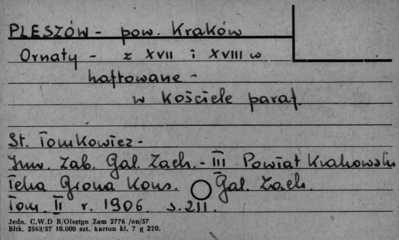 PLESZÓW - pow. Kraków
Ornaty - z XVII i XVIII w
haftowane -
w kościele paraf.
St. Tomkowicz -
Inw. Zab. Gal. Zach. - III Powiat Krakowski
Teka Grona Kons. Gal. Zach.
Tom. II r. 1906. s. 211.
Jedn. C.W.D B/Olsztyn Zam 2776 /on/57
Bltk. 2563/57 10.000 szt. karton kl. 7 g 220.